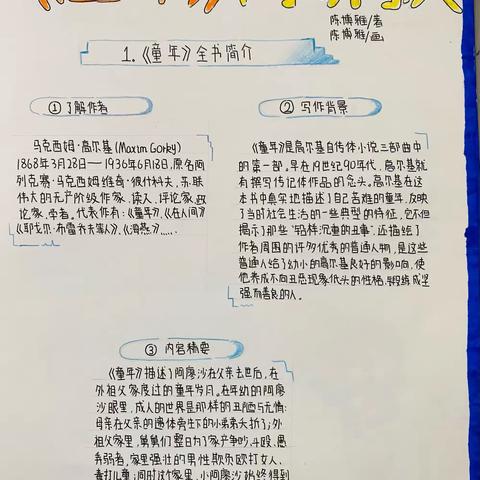 陈博雅/著
陈博雅/画
1.《童年》全书简介
① 了解作者
马克西姆·高尔基(Maxim Gorky)
1868年3月28日—1936年6月18日,原名阿
列克赛·马克西姆维奇·彼什科夫,苏联
伟大的无产阶级作家、诗人、评论家、政
论家、学者。代表作有:《童年》、《在人间》
《耶戈尔·布雷乔夫等人》、《海燕》……
② 写作背景
《童年》是高尔基自传体小说三部曲中
的第一部。早在19世纪90年代,高尔基就
有撰写传记体作品的念头。高尔基在这
本书中真实地描述了自己苦难的童年,反映
了当时社会生活的一些典型的特征,它不但
揭示了那些“铅样沉重的丑事”,还描绘了
作者周围的许多优秀的普通人物,是这些
普通人给了幼小的高尔基良好的影响,使
他养成不向丑恶现象低头的性格,锻练成坚
强而善良的人。
③ 内容精要
《童年》描述了阿廖沙在父亲去世后,在
外祖父家度过的童年岁月。在年幼的阿廖
沙眼里,成人的世界是那样的丑陋与无情:
母亲在父亲的遗体旁生下的小弟弟夭折了;外
祖父家里,舅舅们整日为了家产争吵、斗殴、愚
弄弱者,家里强壮的男性欺负殴打女人、
毒打儿童;同时这个家里,小阿廖沙始终得到